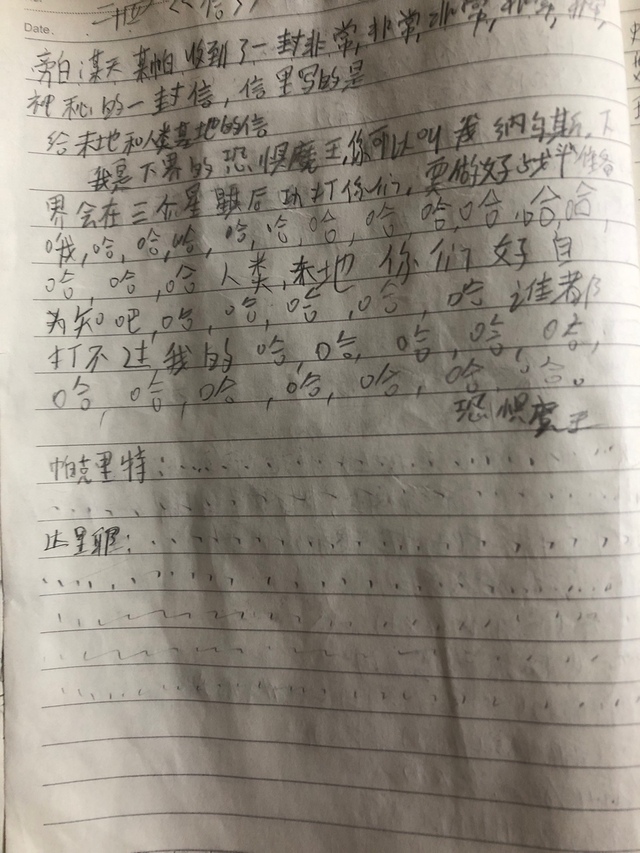 Date.
《信》
旁白：某天某帕收到了一封非常，非常，非常，非常，非常
神秘的一封信，信里写的是
给未地和人类基地的信
我是下界的恐惧魔王，你可以叫我纳乌斯，下
界会在三个星期后功打你们，要做好战斗准备
哦，哈，哈，哈，哈，哈，哈，哈，哈，哈，哈，
哈，哈，哈人类，未地你们好自
为知吧，哈，哈，哈，哈，哈谁都
打不过我的哈，哈，哈，哈，哈，
哈，哈，哈，哈，哈，哈，哈。
恐惧魔王
帕克里特：
达里：